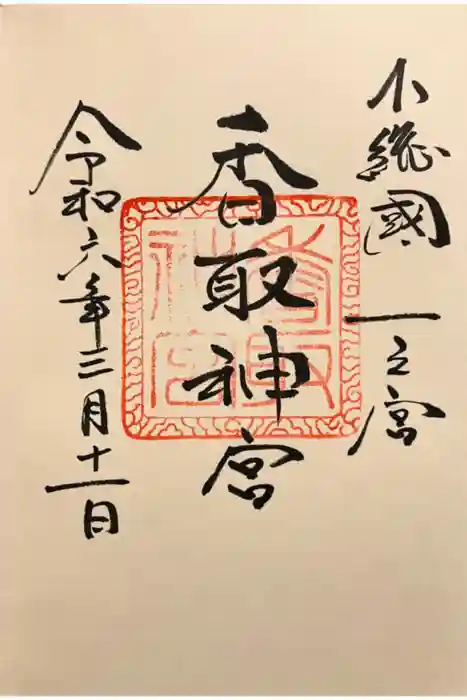 下総國 一之宮
香取神宮
令和六年三月十一日
香取
神宮